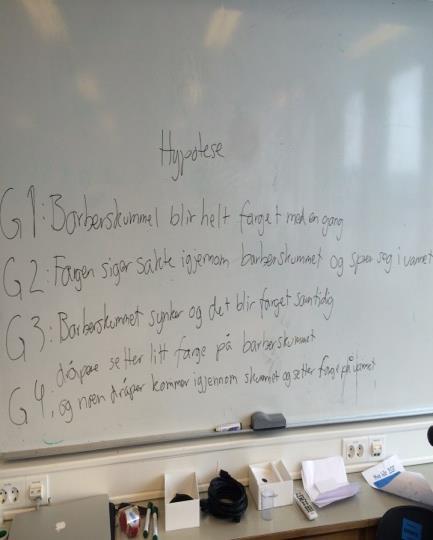 Hypotese
G1: Barberskummel blir helt farget med en gang
G2: Fargen siger sakte igjennom barberskummet og sprer seg i vannet
G3: Barberskummet synker og det blir farget samtidig
dråpene setter litt farge på barberskummet
G4: og noen dråper kommer igjennom skummet og setter farge på vannet